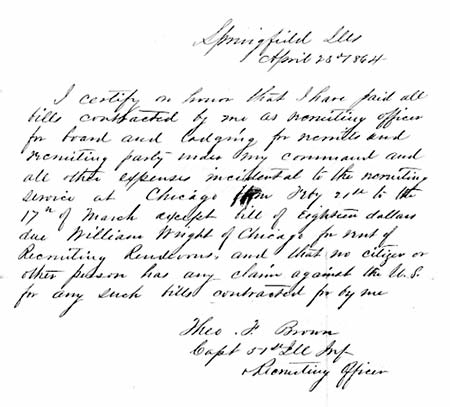 Springfield Ills
April 23d 1864
I certify on honor that I have paid all
bills contracted by me as recruiting officer
for board and lodging for recruits and
recruiting party under my command and
all other expenses incidental to the recruiting
service at Chicago from Feby 21st to the
17th of March except bill of Eighteen dollars
due William Wright of Chicago for rent of
Recruiting Rendevous, and that no citizen or
other person has any claim against the U.S.
for any such bills contracted for by me
Theo. F. Brown
Capt 51st Ill Inf
Recruiting Officer